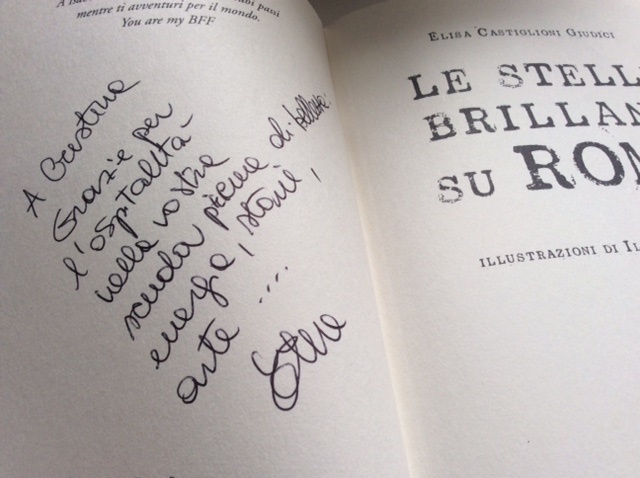 mentre ti avventuri per il mondo.
You are my BFF
A Cristina
Grazie per
l'ospitalità
nella vostra
scuola piena di bellezza,
energia, storie,
arte ....
ELISA CASTIGLIONI GIUDICI
LE STELLE
BRILLAN
SU ROM
ILLUSTRAZIONI DI IL